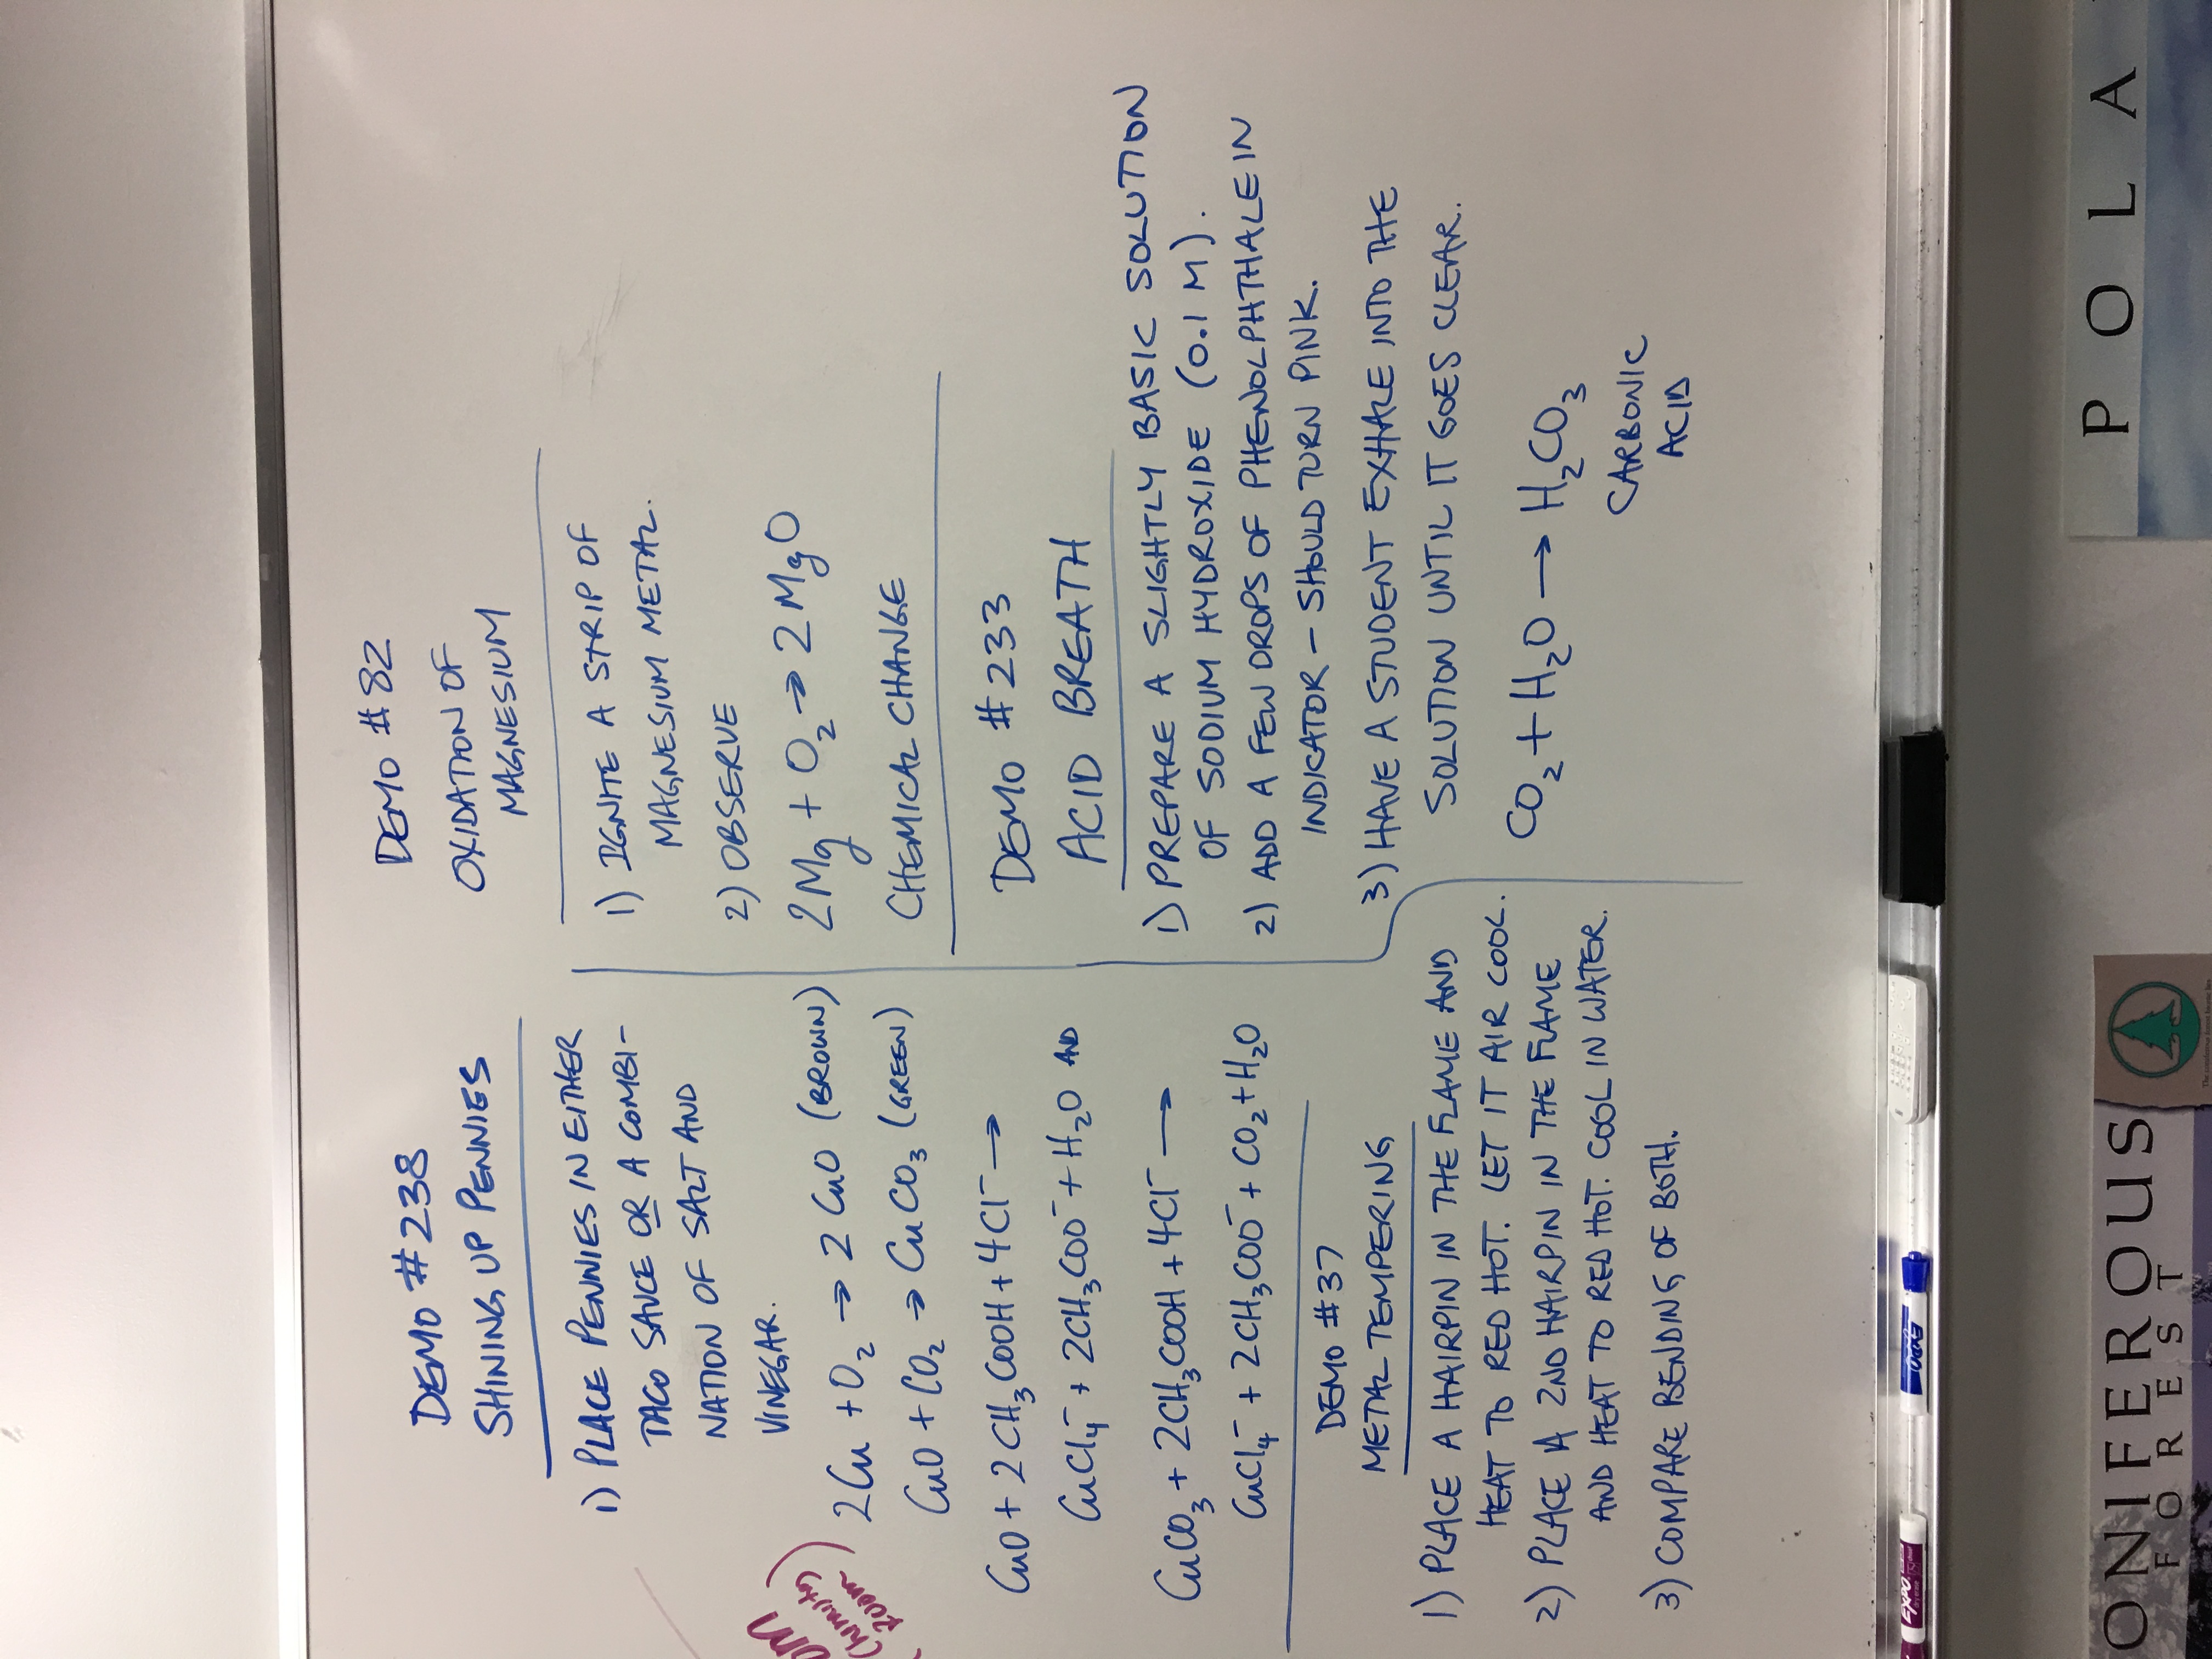 DEMO #238
SHINING UP PENNIES
1) PLACE PENNIES IN EITHER
TACO SAUCE OR A COMBI-
NATION OF SALT AND
VINEGAR.
2Cu + O₂ → 2 CuO (BROWN)
CuO + CO₂ → CuCO₃ (GREEN)
CuO + 2 CH₃COOH + 4Cl⁻ →
CuCl₄⁻ + 2CH₃COO⁻ + H₂O AND
CuCO₃ + 2CH₃COOH + 4Cl⁻ →
CuCl₄⁻ + 2CH₃COO⁻ + CO₂ + H₂O
DEMO #37
METAL TEMPERING
1) PLACE A HAIRPIN IN THE FLAME AND
HEAT TO RED HOT. LET IT AIR COOL.
2) PLACE A 2ND HAIRPIN IN THE FLAME
AND HEAT TO RED HOT. COOL IN WATER.
3) COMPARE BENDING OF BOTH.
DEMO #82
OXIDATION OF
MAGNESIUM
1) IGNITE A STRIP OF
MAGNESIUM METAL.
2) OBSERVE
2Mg + O₂ → 2MgO
CHEMICAL CHANGE
DEMO #233
ACID BREATH
1) PREPARE A SLIGHTLY BASIC SOLUTION
OF SODIUM HYDROXIDE (0.1 M).
2) ADD A FEW DROPS OF PHENOLPHTHALEIN
INDICATOR - SHOULD TURN PINK.
3) HAVE A STUDENT EXHALE INTO THE
SOLUTION UNTIL IT GOES CLEAR.
CO₂ + H₂O → H₂CO₃
CARBONIC
ACID
EXPO
EXPO
ONIFEROUS
FOREST
POLA